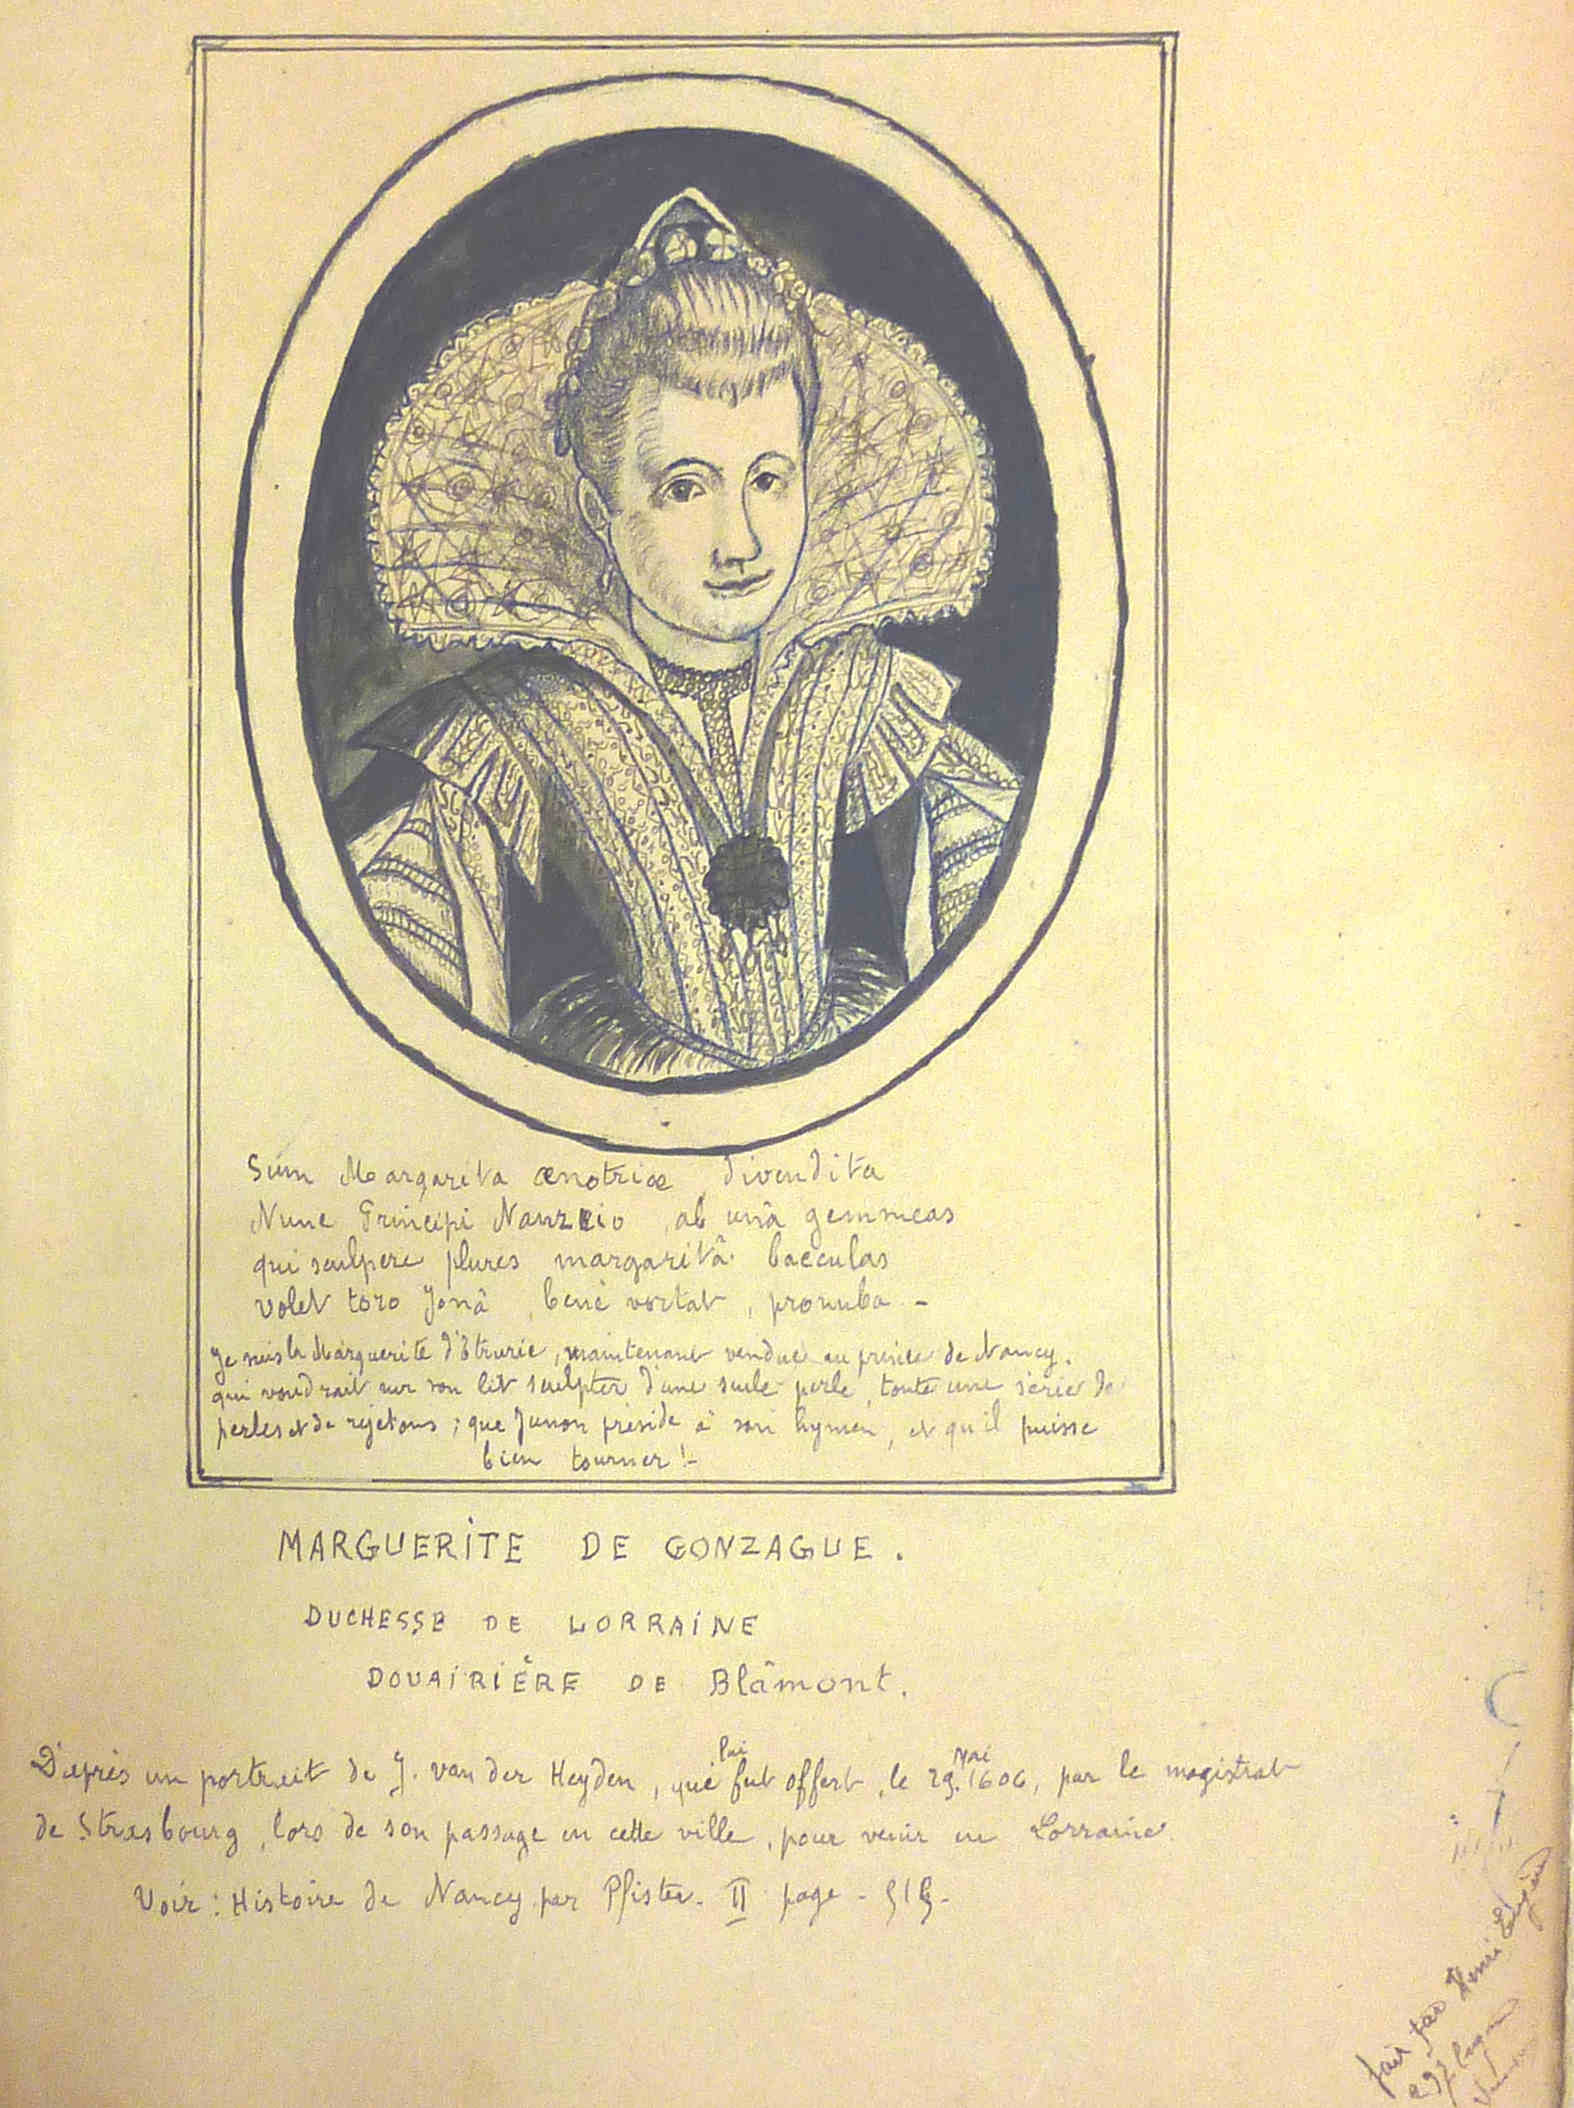 Sum Margarita ænotriæ divendita
Nunc Principi Nanzeio, ab unâ gemmeas
qui sculpere plures margaritâ bacculas
volet toro Jonâ, benè vortat, pronuba -
Je suis la Marguerite d'Etrurie, maintenant vendue au prince de Nancy,
qui voudrait sur son lit sculpter d'une seule perle, toute une série de
perles et de rejetons ; que Junon préside à son hymen, et qu'il puisse
bien tourner !-
MARGUERITE DE GONZAGUE.
DUCHESSE DE LORRAINE
DOUAIRIÈRE DE Blâmont.
D'après un portrait de J. van der Heyden, qui lui fut offert, le 29. Mai 1606, par le magistrat
de Strasbourg, lors de son passage en cette ville, pour venir en Lorraine.
Voir : Histoire de Nancy par Pfister. II page -
fait par Henri